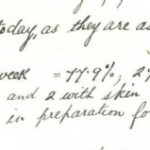 today, as they are as
week = 77.9%, 2
and 2 with skin
in preparation fo